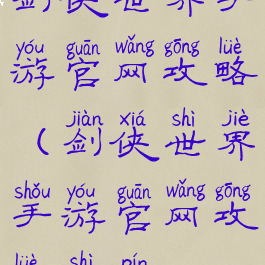 剑侠世界手
yóu guān wǎng gōng lüè
游官网攻略
jiàn xiá shì jiè
(剑侠世界
shǒu yóu guān wǎng gōng
手游官网攻
lüè shì pín